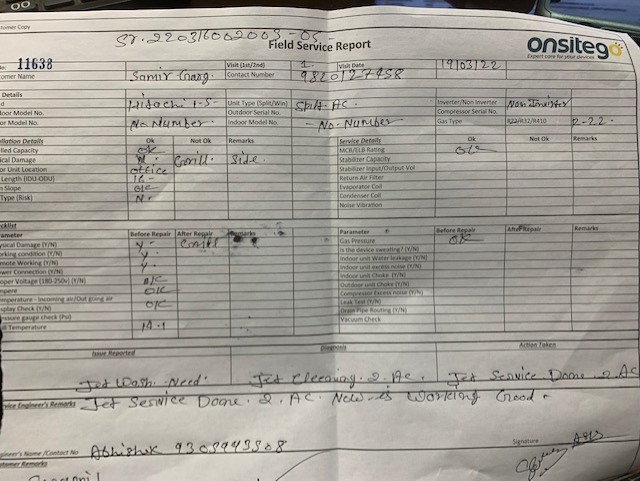 stomer Copy
Sr. 220316002003-05
Field Service Report
onsitego
Expert care for your devices
No: 11638
Visit (1st/2nd) 1
Visit Date 19/03/22
omer Name Samir Garg. Contact Number 9820127458
Details
Hitachi 1-5 Unit Type (Split/Win) Split AC. Inverter/Non Inverter Non Invirter
door Model No. Outdoor Serial No. Compressor Serial No.
or Model No. No Number. Indoor Model No. - No- Number Gas Type R22/R32/R410 R-22-
llation Details Ok Not Ok Remarks Service Details Ok Not Ok Remarks
lled Capacity ok MCB/ELB Rating ok
ical Damage Grill. Side. Stabilizer Capacity
or Unit Location office Stabilizer Input/Output Vol
Length (IDU-ODU) Return Air Filter
n Slope ok Evaporator Coil
Type (Risk) N. Condenser Coil
Noise Vibration
cklist
ameter Before Repair After Repair Remarks Parameter Before Repair After Repair Remarks
ysical Damage (Y/N) y - Gas Pressure OK
orking condition (Y/N) y. Is the device sweating? (Y/N)
mote Working (Y/N) y. Indoor unit Water leakage (Y/N)
wer Connection (Y/N) Indoor unit excess noise (Y/N)
oper Voltage (180-250v) (Y/N) ok Indoor unit Choke (Y/N)
mpere ok Outdoor unit Choke (Y/N)
mperature - Incoming air/Out going air Compressor Excess noise (Y/N)
splay Check (Y/N) ok Leak Test (Y/N)
ressure gauge check (Psi) Drain Pipe Routing (Y/N)
ll Temperature Vacuum Check
Issue Reported Diagnosis Action Taken
Jet Wash Need. Jet Cleening. 2. AC. Jet Service Done 2 AC
vice Engineer's Remarks Jet Service Done. 2. AC. Now is Working Good.
gineer's Name /Contact No Abhishek 9305943508 Signature
stomer Remarks